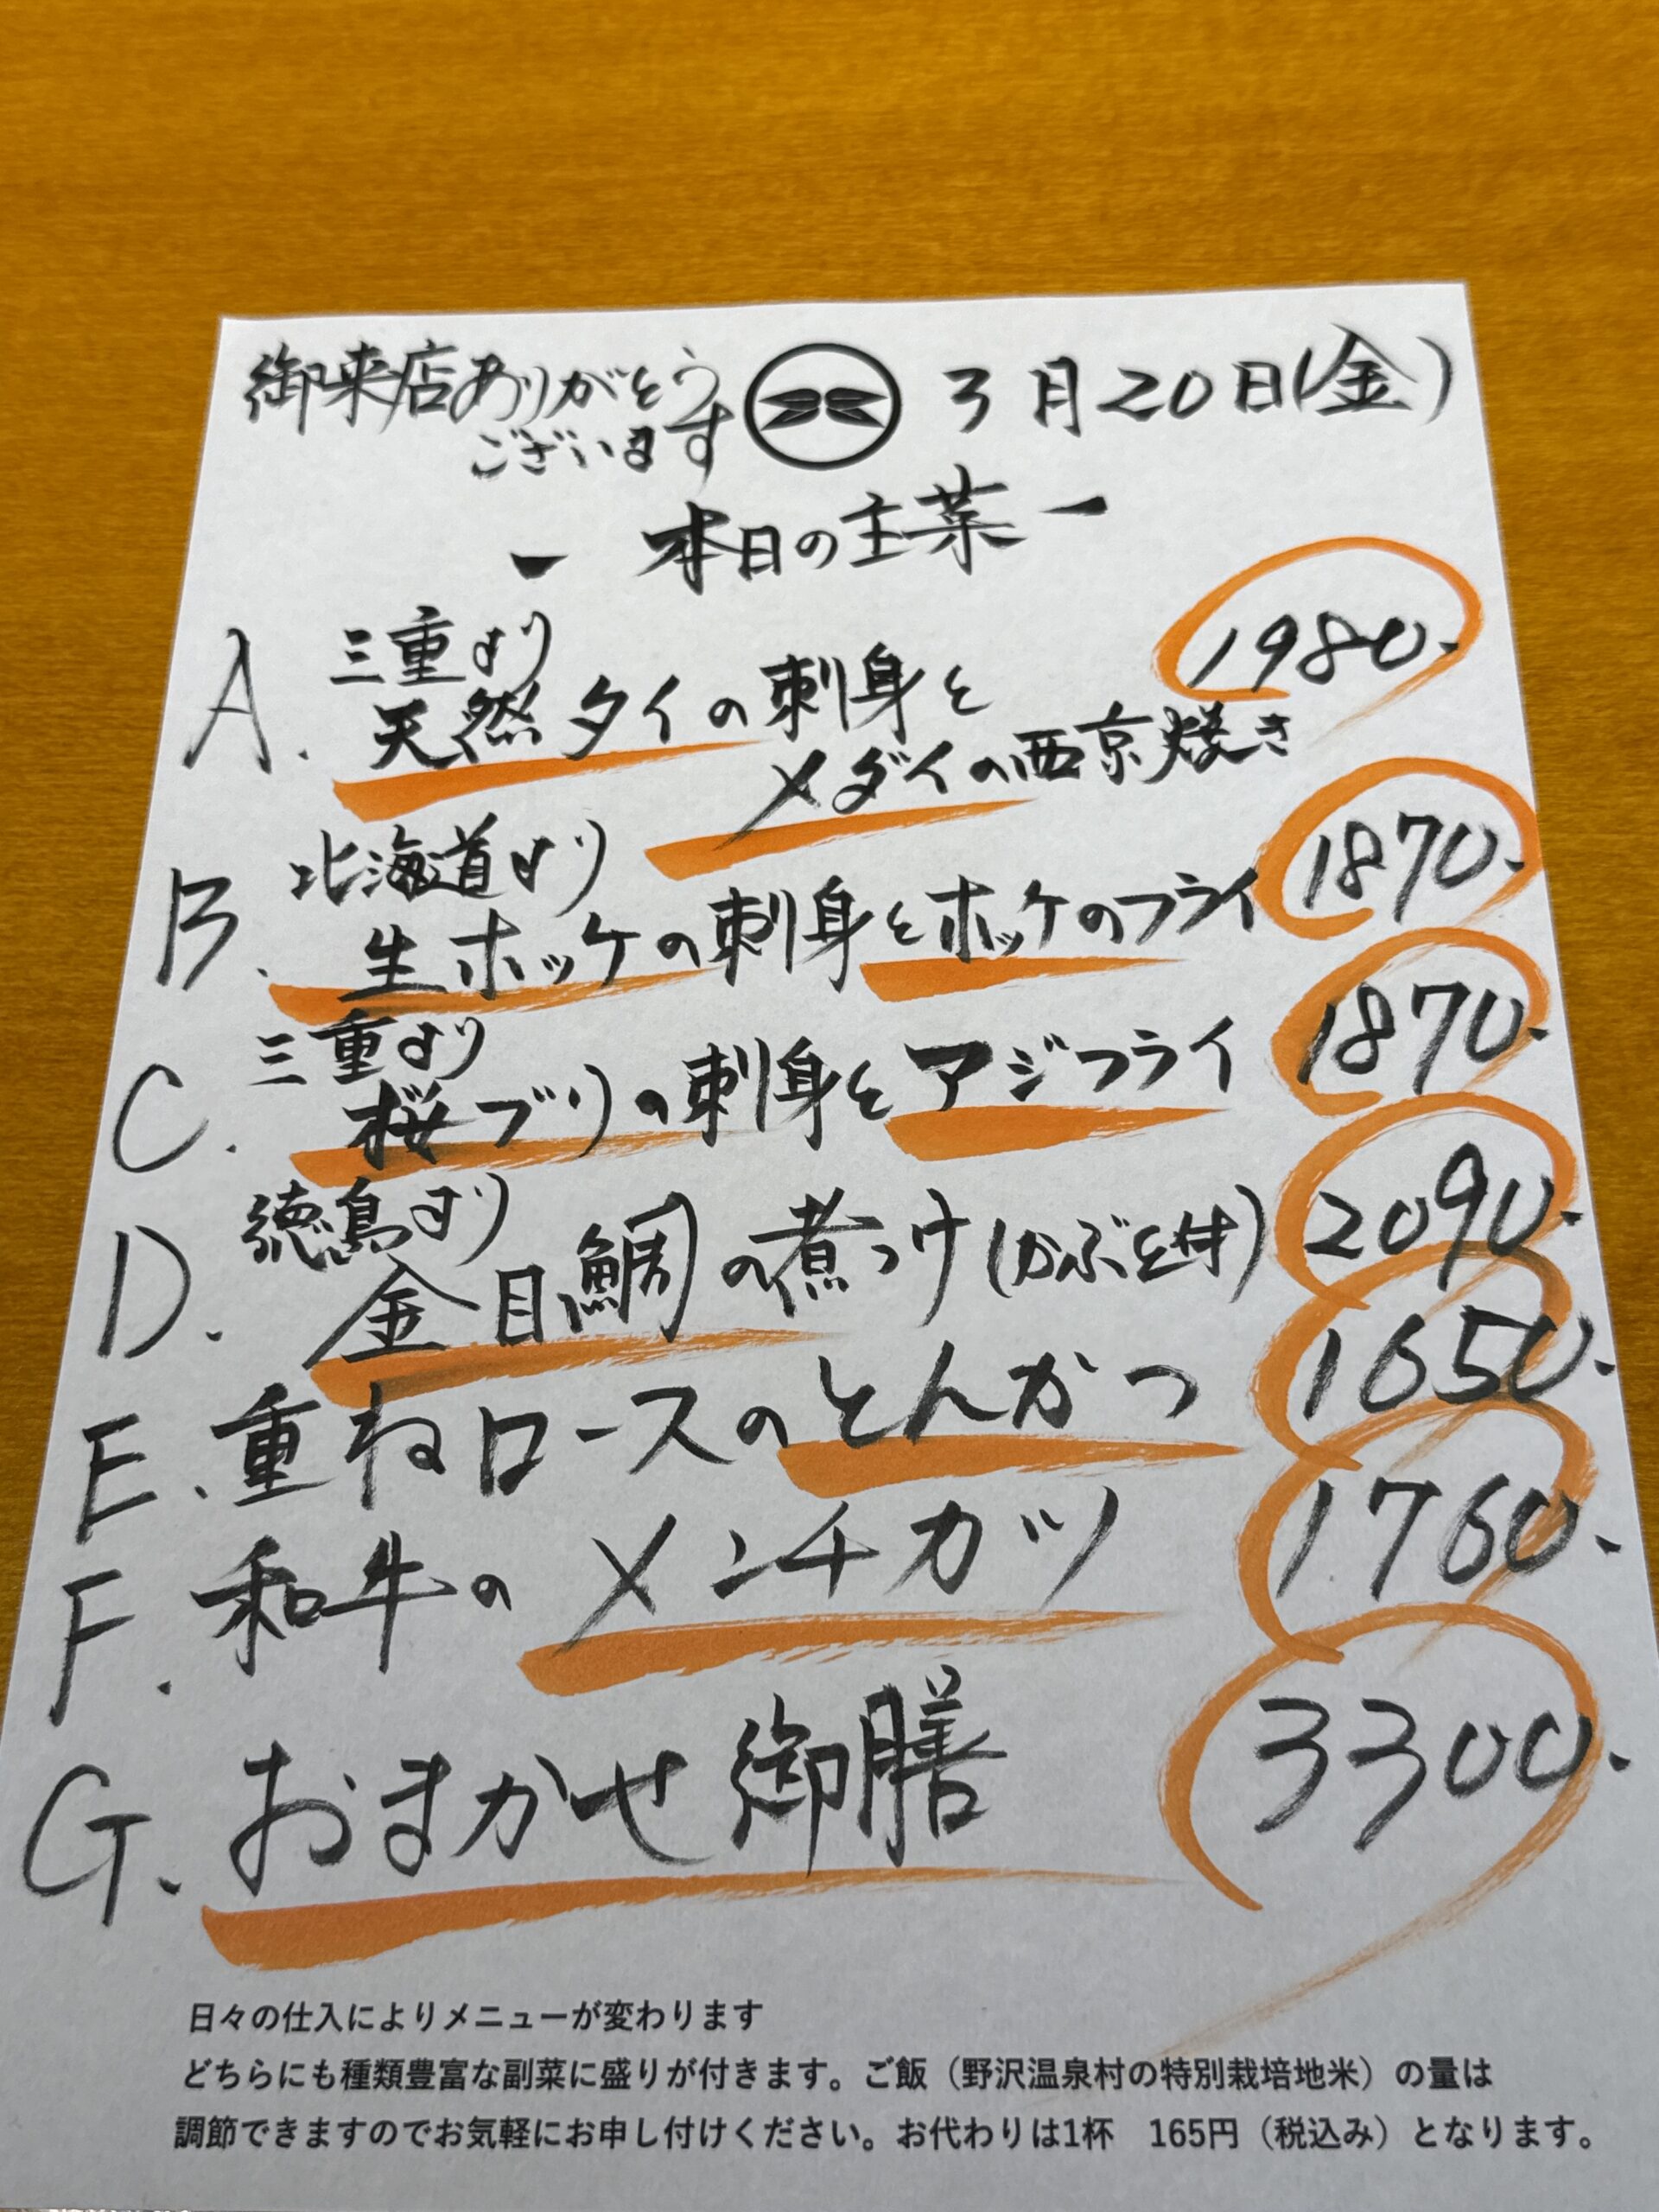 御来店ありがとう
ございます
3月20日(金)
ー 本日の主菜 ー
A. 三重より
天然タイの刺身と
メダイの西京焼き
1980.
B. 北海道より
生ホッケの刺身とホッケのフライ
1870.
C. 三重より
桜ブリの刺身とアジフライ
1870.
D. 徳島より
金目鯛の煮つけ(かぶと付)
2090.
E. 重ねロースのとんかつ
1650.
F. 和牛のメンチカツ
1760.
G. おまかせ御膳
3300.
日々の仕入によりメニューが変わります
どちらにも種類豊富な副菜に盛りが付きます。ご飯（野沢温泉村の特別栽培地米）の量は
調節できますのでお気軽にお申し付けください。お代わりは1杯　165円（税込み）となります。